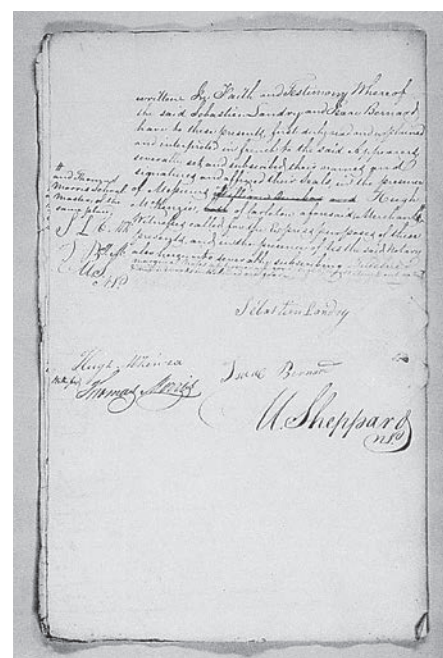 written In Faith and Testimony Whereof
the said Sebastien Landry and Isaac Bernard,
have to these presents, first duly read and explained
and interpreted in french to the said Appearers,
severally set and subscribed their names and
signatures and affixed their Seals, in the presence
of Messieurs and Hugh
McKenzie, of Carleton aforesaid Merchant
Witnesses called for the express purposes of these
presents, and in the presence of us the said Notary
also hereunto severally subscribing
and Thomas
Morris School
Master, of the
same place,
S L
U.S.
N.P
Sebastien Landry
Hugh
Isaac Bernard
Thomas Morris
U. Sheppard
N.P